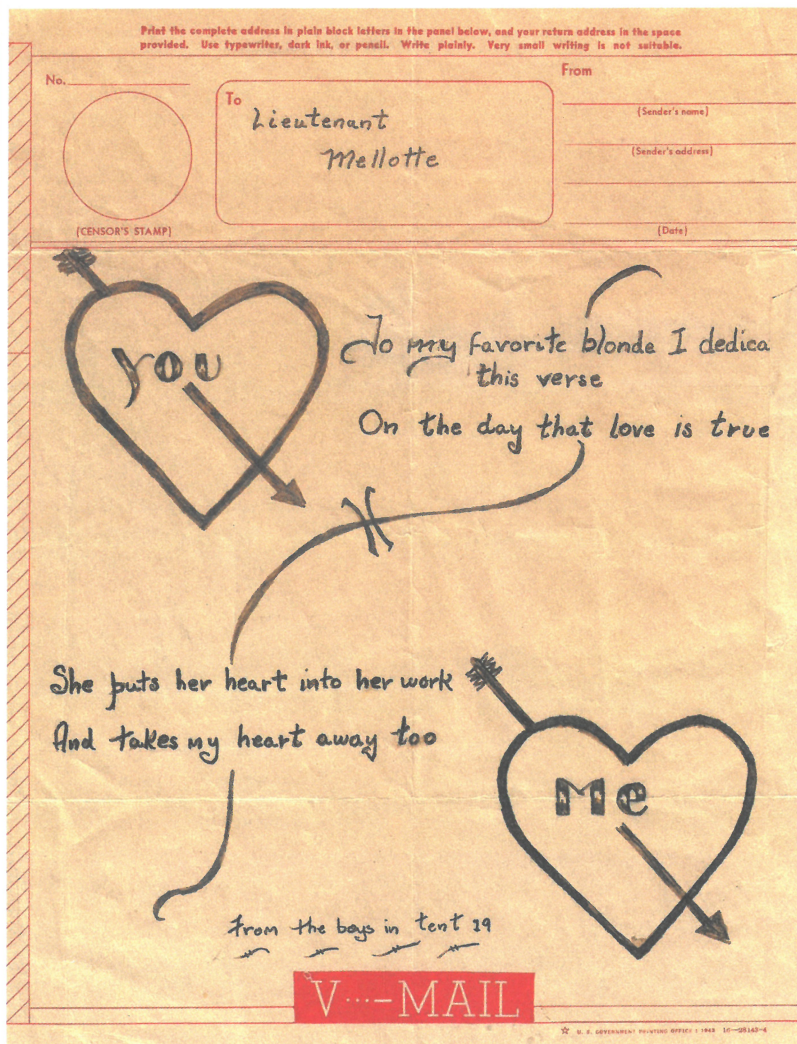 Print the complete address in plain block letters in the panel below, and your return address in the space
provided. Use typewriter, dark ink, or pencil. Write plainly. Very small writing is not suitable.
No.
To
Lieutenant
Mellotte
From
(Sender's name)
(Sender's address)
(CENSOR'S STAMP)
(Date)
you
To my favorite blonde I dedica
this verse
On the day that love is true
She puts her heart into her work
And takes my heart away too
Me
From the boys in tent 19
V···—MAIL
U. S. GOVERNMENT PRINTING OFFICE : 1943 16—28143-4